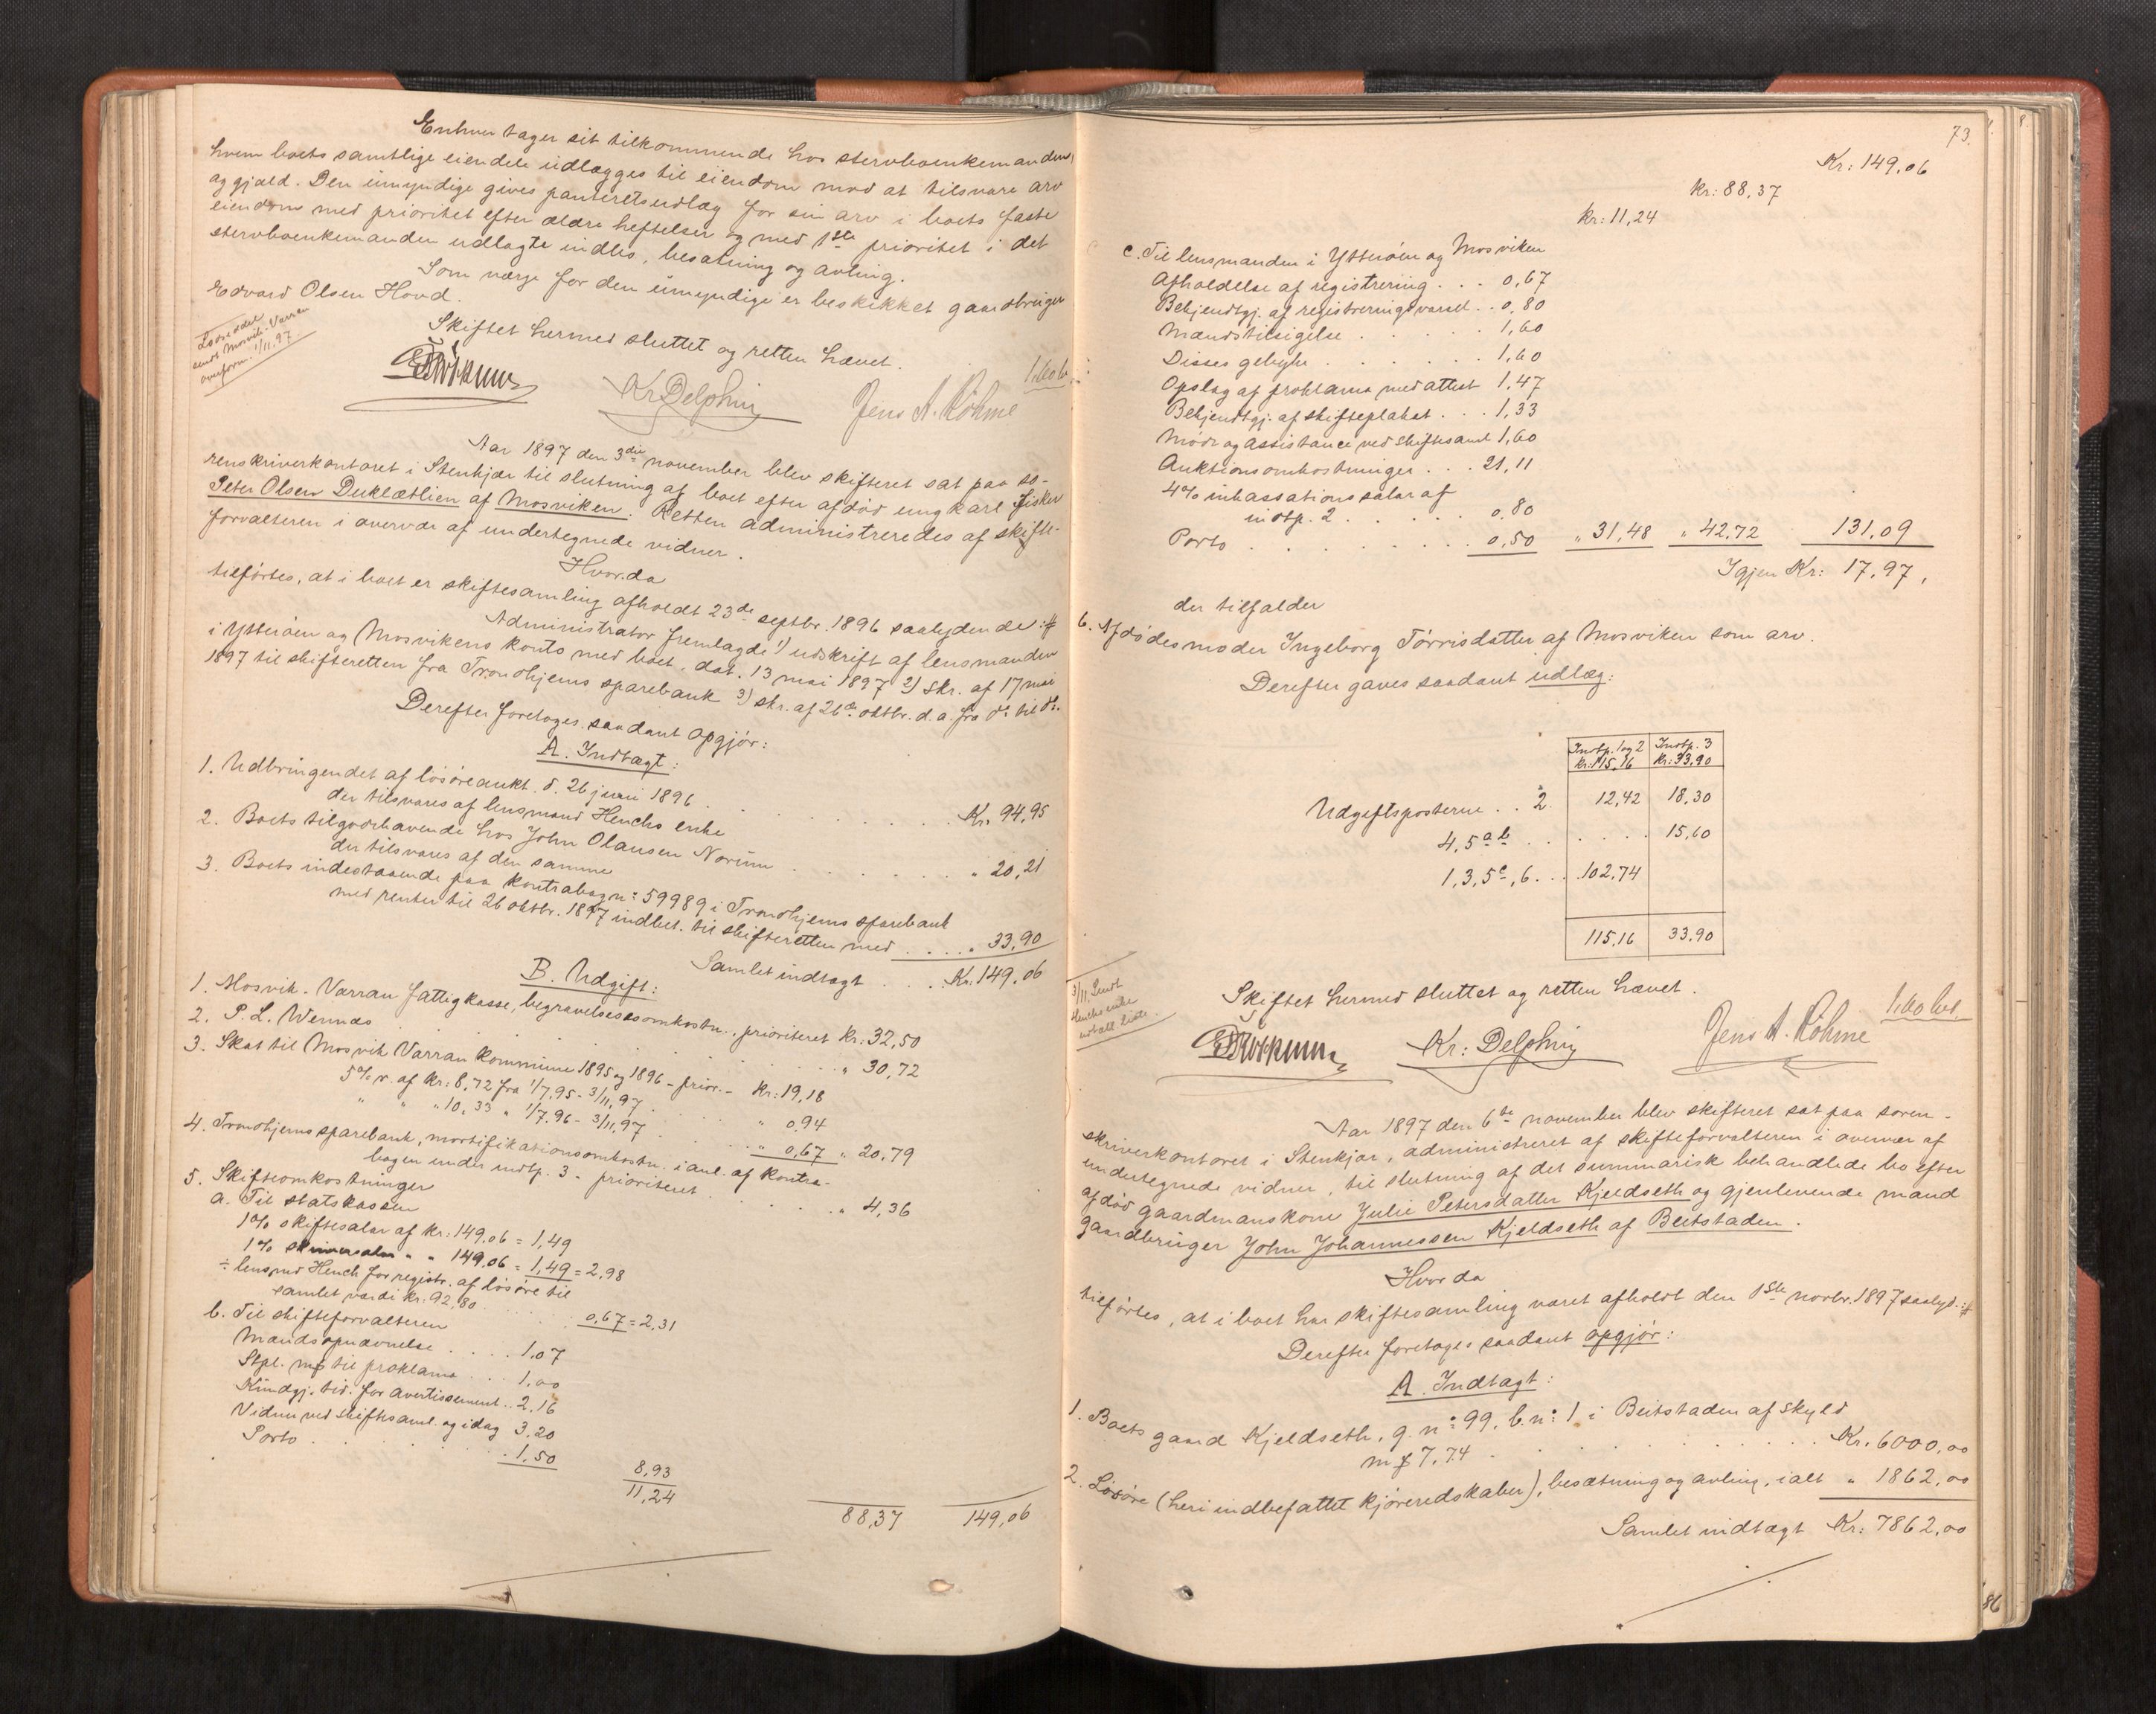 Enhver tager sit tilkommende hos stervboenkemanden,
hvem boets samtlige eiendele udlægges til eiendom mod at tilsvare arv
og gjæld. Den umyndige gives panteretsudlæg for sin arv i boets faste
eiendom med prioritet efter ældre heftelser og med 1ste prioritet i det
stervboenkemanden udlagte indbo, besætning og avling.
Som værge for den umyndige er beskikket gaardbruger
Edvard Olsen Hovd.
Skiftet hermed sluttet og retten hævet.
Kr. Delphin
Jens A. Röhme
Aar 1897 den 3die november blev skifteret sat paa so-
renskriverkontoret i Stenkjær til slutning af boet efter afdöd ungkarl fisker
Peter Olsen Dukletlien af Mosviken. Retten administreredes af skifte-
forvalteren i overvær af undertegnede vidner.
Hvorda
tilförtes, at i boet er skiftesamling afholdt 23de septbr. 1896 saalydende: #
Administrator fremlagde 1) udskrift af lensmanden
i Ytteröen og Mosvikens konto med boet, dat. 13 mai 1897 2) skr. af 17 mai
1897 til skifteretten fra Trondhjems sparebank 3) skr. af 26de oktbr. d.a. fra do til do.
Derefter foretoges saadant opgjör:
A. Indtægt:
1. Udbringendet af lösöreaukt. d. 26 juni 1896
der tilsvares af lensmand Henchs enke . . . Kr. 94,95
2. Boets tilgodehavende hos John Olausen Norum
der tilsvares af den samme . . . " 20,21
3. Boets indestaaende paa kontrabog no: 59989 i Trondhjems sparebank
med renter til 26 oktbr. 1897 indbet. til skifteretten med . . . . " 33,90
Samlet indtægt . . . Kr. 149,06
B. Udgift:
1. Mosvik-Varran fattigkasse, begravelsesomkostn., prioriteret Kr: 32,50
2. P. L. Wennes . . . " 30,72
3. Skat til Mosvik Varran kommune 1895 og 1896 - prior. - Kr: 19,18
5% r. af Kr: 8,72 fra 1/7.95 - 3/11.97 . . " 0,94
" " " 10,33 " 1/7.96 - 3/11.97 . . " 0,67 " 20,79
4. Trondhjems sparebank, mortifikationsomkostn. i anl. af kontra-
bogen under indtp. 3 - prioriteret . . . " 4,36
5. Skifteomkostninger
a. Til statskassen
1% skiftesalær af kr: 149,06 = 1,49
1% skriversalær " " 149,06 = 1,49 = 2,98
÷ lensmd Hench for registr. af lösöre til
samlet værdi kr: 92,80 . . . 0,67 = 2,31
b. Til skifteforvalteren
Mandsopnævnelse . . . . 1,07
Stpl. mp til proklama . . . 1,00
Kundgj. tid. for avertissement . . 2,16
Vidner ved skiftesaml. og idag 3,20
Porto . . . 1,50
8,93
11,24
88,37 149,06
73.
Kr: 149,06
Kr: 88,37
Kr: 11,24
c. Til lensmanden i Ytteröen og Mosviken
Afholdelse af registrering . . . 0,67
Bekjendtgj. af registreringsvarsel . . 0,80
Mandstilsigelse . . . 1,60
Disses gebyhr . . . 1,60
Opslag af proklama med attest 1,47
Bekjendtgj. af skifteplakat . . . 1,33
Möde og assistance ved skiftesaml 1,60
Auktionsomkostninger . . . 21,11
4% inkassationssalær af
indtp. 2 . . . 0,80
Porto . . . 0,50 " 31,48 " 42,72 131,09
Igjen Kr: 17,97,
der tilfalder
6. Afdödes moder Ingeborg Törrisdatter af Mosviken som arv.
Derefter gaves saadant udlæg:
Indtp. 1 og 2 Indtp. 3
Kr: 115,16 Kr: 33,90
Udgiftsposterne . . 2. 12,42 18,30
4, 5 a b . . . 15,60
1, 3, 5 c, 6 . . . 102,74
115,16 33,90
Skiftet hermed sluttet og retten hævet.
Kr: Delphin
Jens A. Röhme
Aar 1897 den 6te november blev skifteret sat paa soren-
skriverkontoret i Stenkjær, administreret af skifteforvalteren i overvær af
undertegnede vidner, til slutning af det summarisk behandlede bo efter
afdöd gaardmanskone Julie Petersdatter Kjeldseth og gjenlevende mand
gaardbruger John Johannessen Kjeldseth af Beitstaden.
Hvorda
tilförtes, at i boet har skiftesamling været afholdt den 1ste novbr. 1897 saalyd.: #
Derefter foretoges saadant opgjör:
A. Indtægt:
1. Boets gaard Kjeldseth, g. no: 99, b. no: 1 i Beitstaden af skyld
m/ 7,74 . . . Kr. 6000,00
2. Lösöre (heri indbefattet kjöreredskaber), besætning og avling, ialt " 1862,00
Samlet indtægt Kr: 7862,00
86